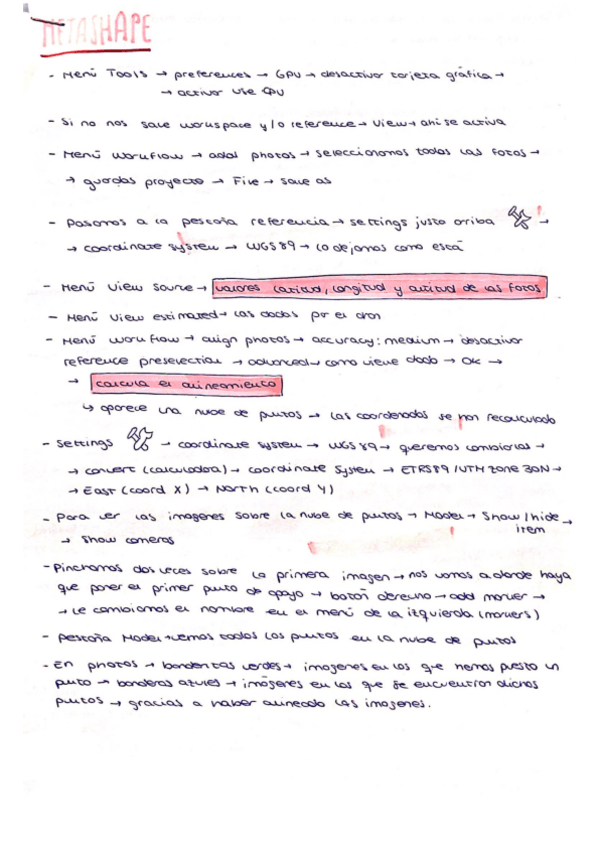 METASHAPE
- Menú Tools → preferences → GPU → desactivo tarjeta gráfica →
→ activar use CPU
- Si no nos sale workspace y/o reference → View → ahí se activa
- Menú workflow → add photos → seleccionamos todas las fotos →
→ guardas proyecto → File → save as
- Pasamos a la pestaña referencia → settings justo arriba →
→ coordinate system → WGS89 → lo dejamos como está
- Menú View Source → valores latitud, longitud y altitud de las fotos
- Menú View estimated → las dadas por el dron
- Menú workflow → align photos → accuracy: medium → desactivar
reference preselection → advanced → como viene dado → OK →
→ calcula el alineamiento
↳ aparece una nube de puntos → las coordenadas se han recalculado
- Settings → coordinate system → WGS 89 → queremos cambiarlas →
→ convert (calculadora) → coordinate System → ETRS89/UTM zone 30N →
→ East (coord X) → North (coord Y)
- Para ver las imagenes sobre la nube de puntos → Model → Show/hide →
item
→ show cameras
- Pinchamos dos veces sobre la primera imagen → nos vamos a donde haya
que poner el primer punto de apoyo → botón derecho → add marker →
→ le cambiamos el nombre en el menú de la izquierda (markers)
- Pestaña Model → vemos todos los puntos en la nube de puntos
- En photos → banderitas verdes → imagenes en las que hemos puesto un
punto → banderas azules → imágenes en las que se encuentran dichos
puntos → gracias a haber alineado las imagenes.